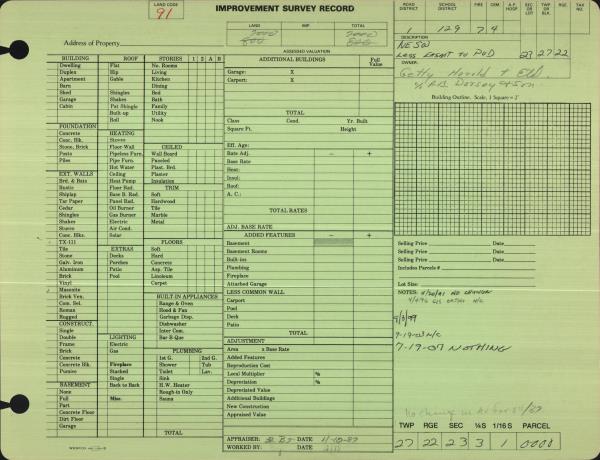 LAND CODE
91
IMPROVEMENT SURVEY RECORD
LAND IMP. TOTAL
Address of Property
ASSESSED VALUATION
ROAD DISTRICT SCHOOL DISTRICT FIRE / REC A.F. HOSP SEC OR LOT TWP OR BLK RGE TAX
129 7 9
DESCRIPTION
NESW 27 27 22
Less EASMT to PUD
OWNER
Getty Harold +
Building Outline. Scale, 1 Square = 1'
BUILDING ROOF STORIES 1 2 A B
Dwelling Flat No. Rooms
Duplex Hip Living
Apartment Gable Kitchen
Barn Dining
Shed Shingles Bed
Garage Shakes Bath
Cabin Pat Shingle Family
Built-up Utility
Roll Nook
FOUNDATION
Concrete HEATING
Conc. Blk. Stoves CEILED
Stone, Brick Floor-Wall Wall Board
Posts Pipeless Furn. Paneled
Piles Pipe Furn. Plast. Brd.
Hot Water Plaster
EXT. WALLS Ceiling Insulation
Brd. & Bats Heat Pump TRIM
Rustic Floor Rad. Soft
Shiplap Base B. Rad. Hardwood
Tar Paper Panel Rad. Tile
Cedar Oil Burner Marble
Shingles Gas Burner Metal
Shakes Electric
Stucco Air Cond.
Conc. Blks. Solar
TX-111 FLOORS
Tile EXTRAS Soft
Stone Decks Hard
Galv. Iron Porches Concrete
Aluminum Patio Asp. Tile
Brick Pool Linoleum
Vinyl Carpet
Masonite
Brick Ven. BUILT-IN APPLIANCES
Com. Sel. Range & Oven
Roman Hood & Fan
Rugged Garbage Disp.
CONSTRUCT. Dishwasher
Single Inter Com.
Double LIGHTING Bar-B-Que
Frame Electric
Brick Gas PLUMBING
Concrete 1st G. 2nd G.
Concrete Blk. Fireplace Shower Tub
Pumice Stacked Toilet Lav.
Single Sink
BASEMENT Back to Back H.W. Heater
Full Misc. Rough-in Only
Part Seams
Concrete Floor
Dirt Floor
Garage TOTAL
ADDITIONAL BUILDINGS Full Value
Garage: X
Carport: X
TOTAL
Class Cond. Yr. Built
Square Ft. Height
Eff. Age:
Rate Adj. − +
Base Rate
Heat:
Insul:
Roof:
A. C.:
TOTAL RATES
ADJ. BASE RATE
ADDED FEATURES − +
Basement
Basement Rooms
Built-ins
Plumbing
Fireplace
Attached Garage
LESS COMMON WALL
Carport
Pool
Deck
Patio
TOTAL
ADJUSTMENT
Area x Base Rate
Added Features
Reproduction Cost
Local Multiplier %
Depreciation %
Depreciated Value
Additional Buildings
New Construction
Appraised Value
APPRAISER: DATE 11-10-87
WORKED BY: DATE
Selling Price Date
Selling Price Date
Selling Price Date
Includes Parcels #
Lot Size:
NOTES: NO CHANGE
7-19-07 NOTHING
TWP RGE SEC ¼S 1/16 S PARCEL
27 22 27 3 1 0000